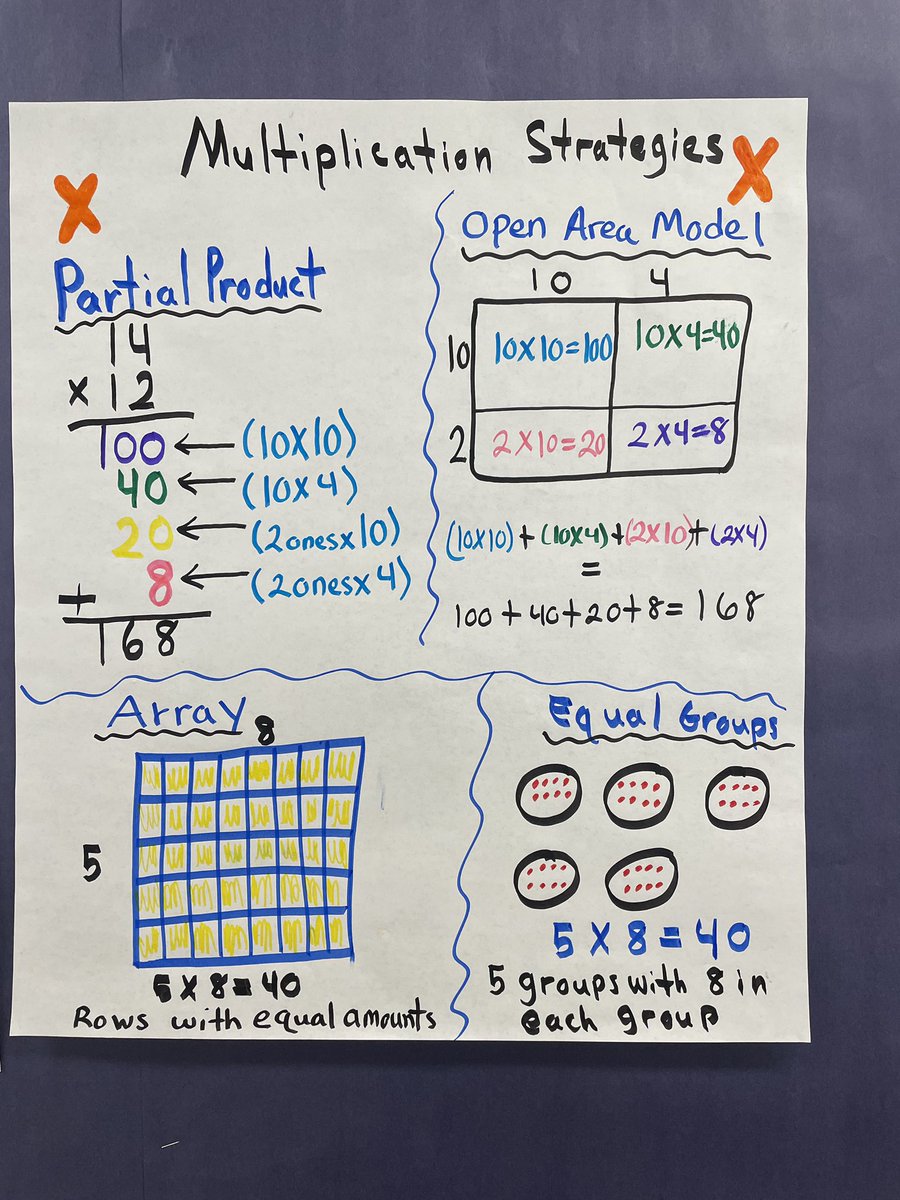 Multiplication Strategies
X
X
Partial Product
14
x 12
100 ← (10x10)
40 ← (10x4)
20 ← (2onesx10)
+ 8 ← (2onesx4)
168
Open Area Model
10 4
10 10x10=100 10x4=40
2 2x10=20 2x4=8
(10x10)+(10x4)+(2x10)+(2x4)
=
100+40+20+8=168
Array
8
5
5x8=40
Rows with equal amounts
Equal Groups
5x8=40
5 groups with 8 in
each group